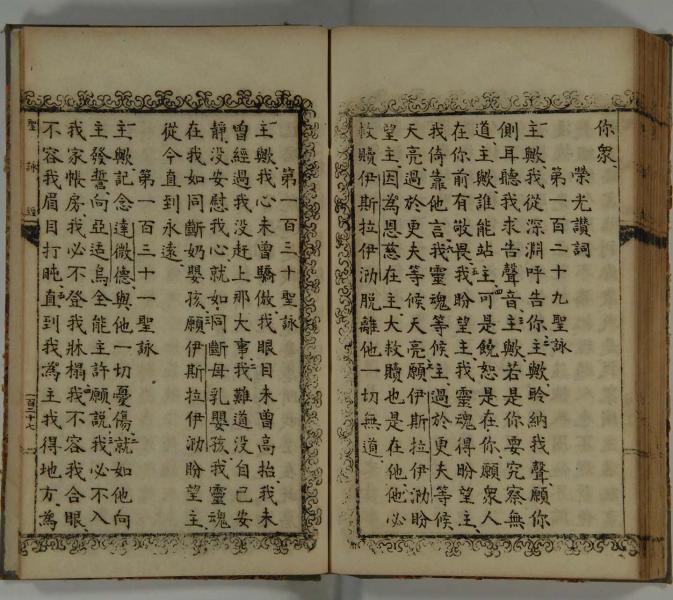 你衆
榮光讚詞
第一百二十九聖詠
主歟我從深淵呼告你主歟聆納我聲願你
側耳聽我求告聲音主歟若是你要究察無
道主歟誰能站主可是饒恕是在你願衆人
在你前有敬畏我盼望主我靈魂得盼望主
我倚靠他言我靈魂等候主過於更夫等候
天亮過於更夫等候天亮願伊斯拉伊泐盼
望主因為恩慈在主大救贖也是在他他必
救贖伊斯拉伊泐脫離他一切無道
第一百三十聖詠
主歟我心未曾驕傲我眼目未曾高抬我未
曾經過我沒赶上那大事我難道沒自己安
靜沒安慰我心就如同斷母乳嬰孩我靈魂
在我如同斷奶嬰孩願伊斯拉伊泐盼望主
從今直到永遠
第一百三十一聖詠
主歟記念達微德與他一切憂傷就如他向
主發誓向亞适烏全能主許願說我必不入
我家帳房我必不登我牀榻我不容我合眼
不容我眉目打盹直到我為主我得地方為
聖詠經
一百二十七